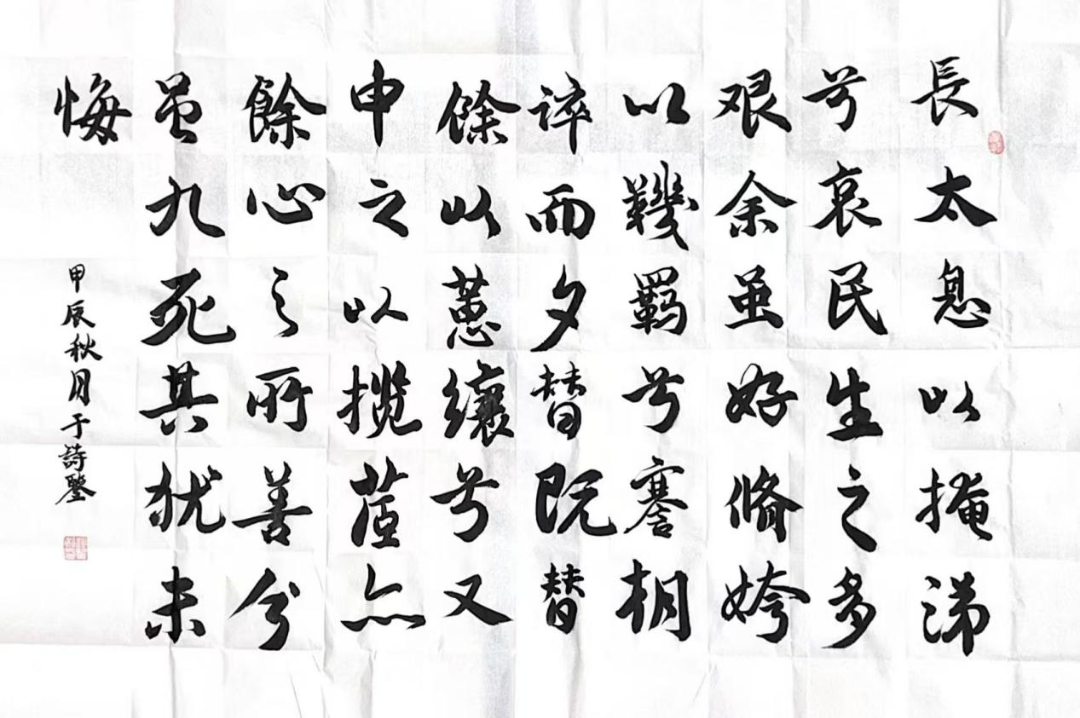 長太息以掩涕
兮哀民生之多
艰余虽好脩姱
以鞿羁兮謇朝
谇而夕替既替
餘以蕙纕兮又
申之以揽茝亦
餘心之所善兮
虽九死其犹未
悔
甲辰秋月于詩鑒